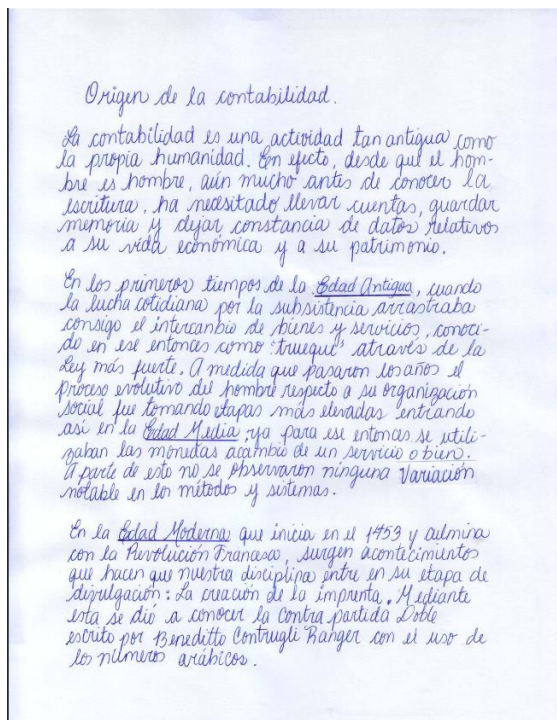 Origen de la contabilidad.
La contabilidad es una actividad tan antigua como
la propia humanidad. En efecto, desde que el hom-
bre es hombre, aún mucho antes de conocer la
escritura, ha necesitado llevar cuentas, guardar
memoria y dejar constancia de datos relativos
a su vida económica y a su patrimonio.
En los primeros tiempos de la Edad Antigua, cuando
la lucha cotidiana por la subsistencia arrastraba
consigo el intercambio de bienes y servicios, conoci-
do en ese entonces como "trueque" através de la
Ley más fuerte. A medida que pasaron los años el
proceso evolutivo del hombre respecto a su organización
social fue tomando etapas más elevadas entrando
así en la Edad Media, ya para ese entonces se utili-
zaban las monedas acambio de un servicio o bien.
A parte de esto no se observaron ninguna Variación
notable en los métodos y sistemas.
En la Edad Moderna que inicia en el 1453 y culmina
con la Revolución Francesa, surgen acontecimientos
que hacen que nuestra disciplina entre en su etapa de
divulgación: La creación de la imprenta. Mediante
esta se dió a conocer la Contra partida Doble
escrito por Beneditto Contrugli Ranger con el uso de
los números arábicos.